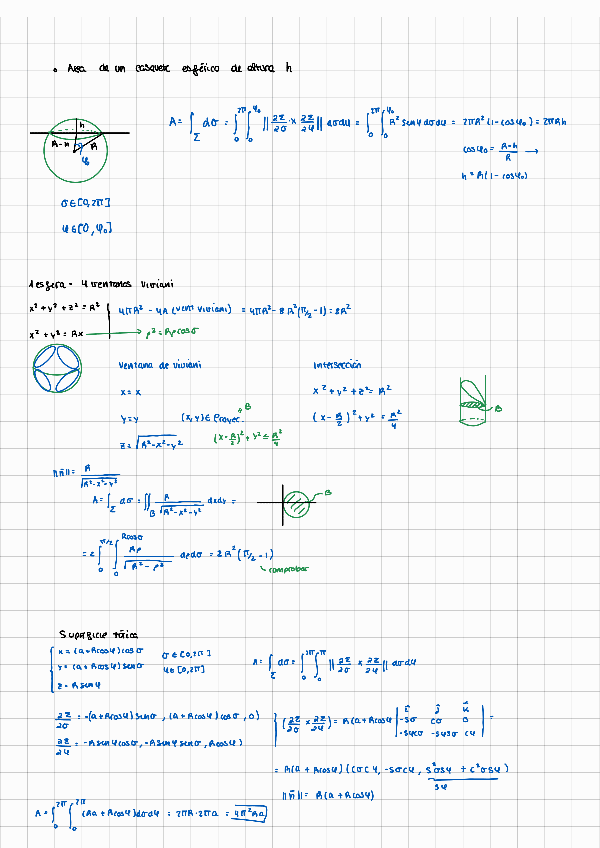 • Area de un casquete esférico de altura h
h
R-h
R
φ₀
A = ∫_Σ dσ = ∫₀^{2π} ∫₀^{φ₀} ||∂Σ/∂σ × ∂Σ/∂φ|| dσdφ = ∫₀^{2π} ∫₀^{φ₀} R² senφ dσdφ = 2πR² (1-cosφ₀) = 2πRh
cosφ₀ = (R-h)/R →
h = R(1-cosφ₀)
σ ∈ [0,2π]
φ ∈ [0,φ₀]
1 esfera - 4 ventanas viviani
x² + y² + z² = R²
4πR² - 4A (vent viviani) = 4πR² - 8R²(π/2 - 1) = 8R²
x² + y² = Rx → ρ² = Rρcosσ
Ventana de viviani
Intersección
x = x
x² + y² + z² = R²
y = y
(x,y) ∈ Proyec. B
(x - R/2)² + y² = R²/4
z = √(R²-x²-y²)
(x - R/2)² + y² ≤ R²/4
B
||n⃗|| = R/√(R²-x²-y²)
A = ∫_Σ dσ = ∬_B R/√(R²-x²-y²) dxdy =
B
= 2 ∫₀^{π/2} ∫₀^{Rcosσ} Rρ/√(R²-ρ²) dρdσ = 2R²(π/2 - 1)
comprobar
Superficie tórica
x = (a+Rcosφ)cosσ
σ ∈ [0,2π]
y = (a+Rcosφ)senσ
φ ∈ [0,2π]
z = R senφ
A = ∫_Σ dσ = ∫₀^{2π} ∫₀^{2π} ||∂Σ/∂σ × ∂Σ/∂φ|| dσdφ
∂Σ/∂σ = -(a+Rcosφ)senσ, (a+Rcosφ)cosσ, 0)
∂Σ/∂φ = -Rsenφcosσ, -Rsenφsenσ, Rcosφ)
(∂Σ/∂σ × ∂Σ/∂φ) = R(a+Rcosφ) | i⃗ j⃗ k⃗ | -sσ cσ 0 | -sφcσ -sφsσ cφ | =
= R(a+Rcosφ)(cσcφ, -sσcφ, s²σsφ + c²σsφ)
sφ
||n⃗|| = R(a+Rcosφ)
A = ∫₀^{2π} ∫₀^{2π} (Ra+Rcosφ)dσdφ = 2πR·2πa = 4π²Ra